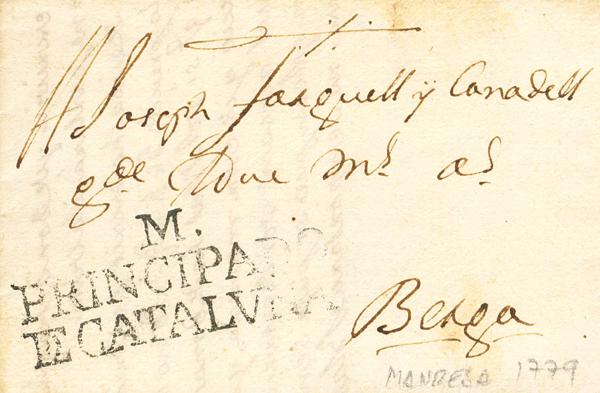 A Joseph Farguell y Canadell
gde ms as
M.
PRINCIPADO
DE CATALVÑA
Berga
MANRESA 1779